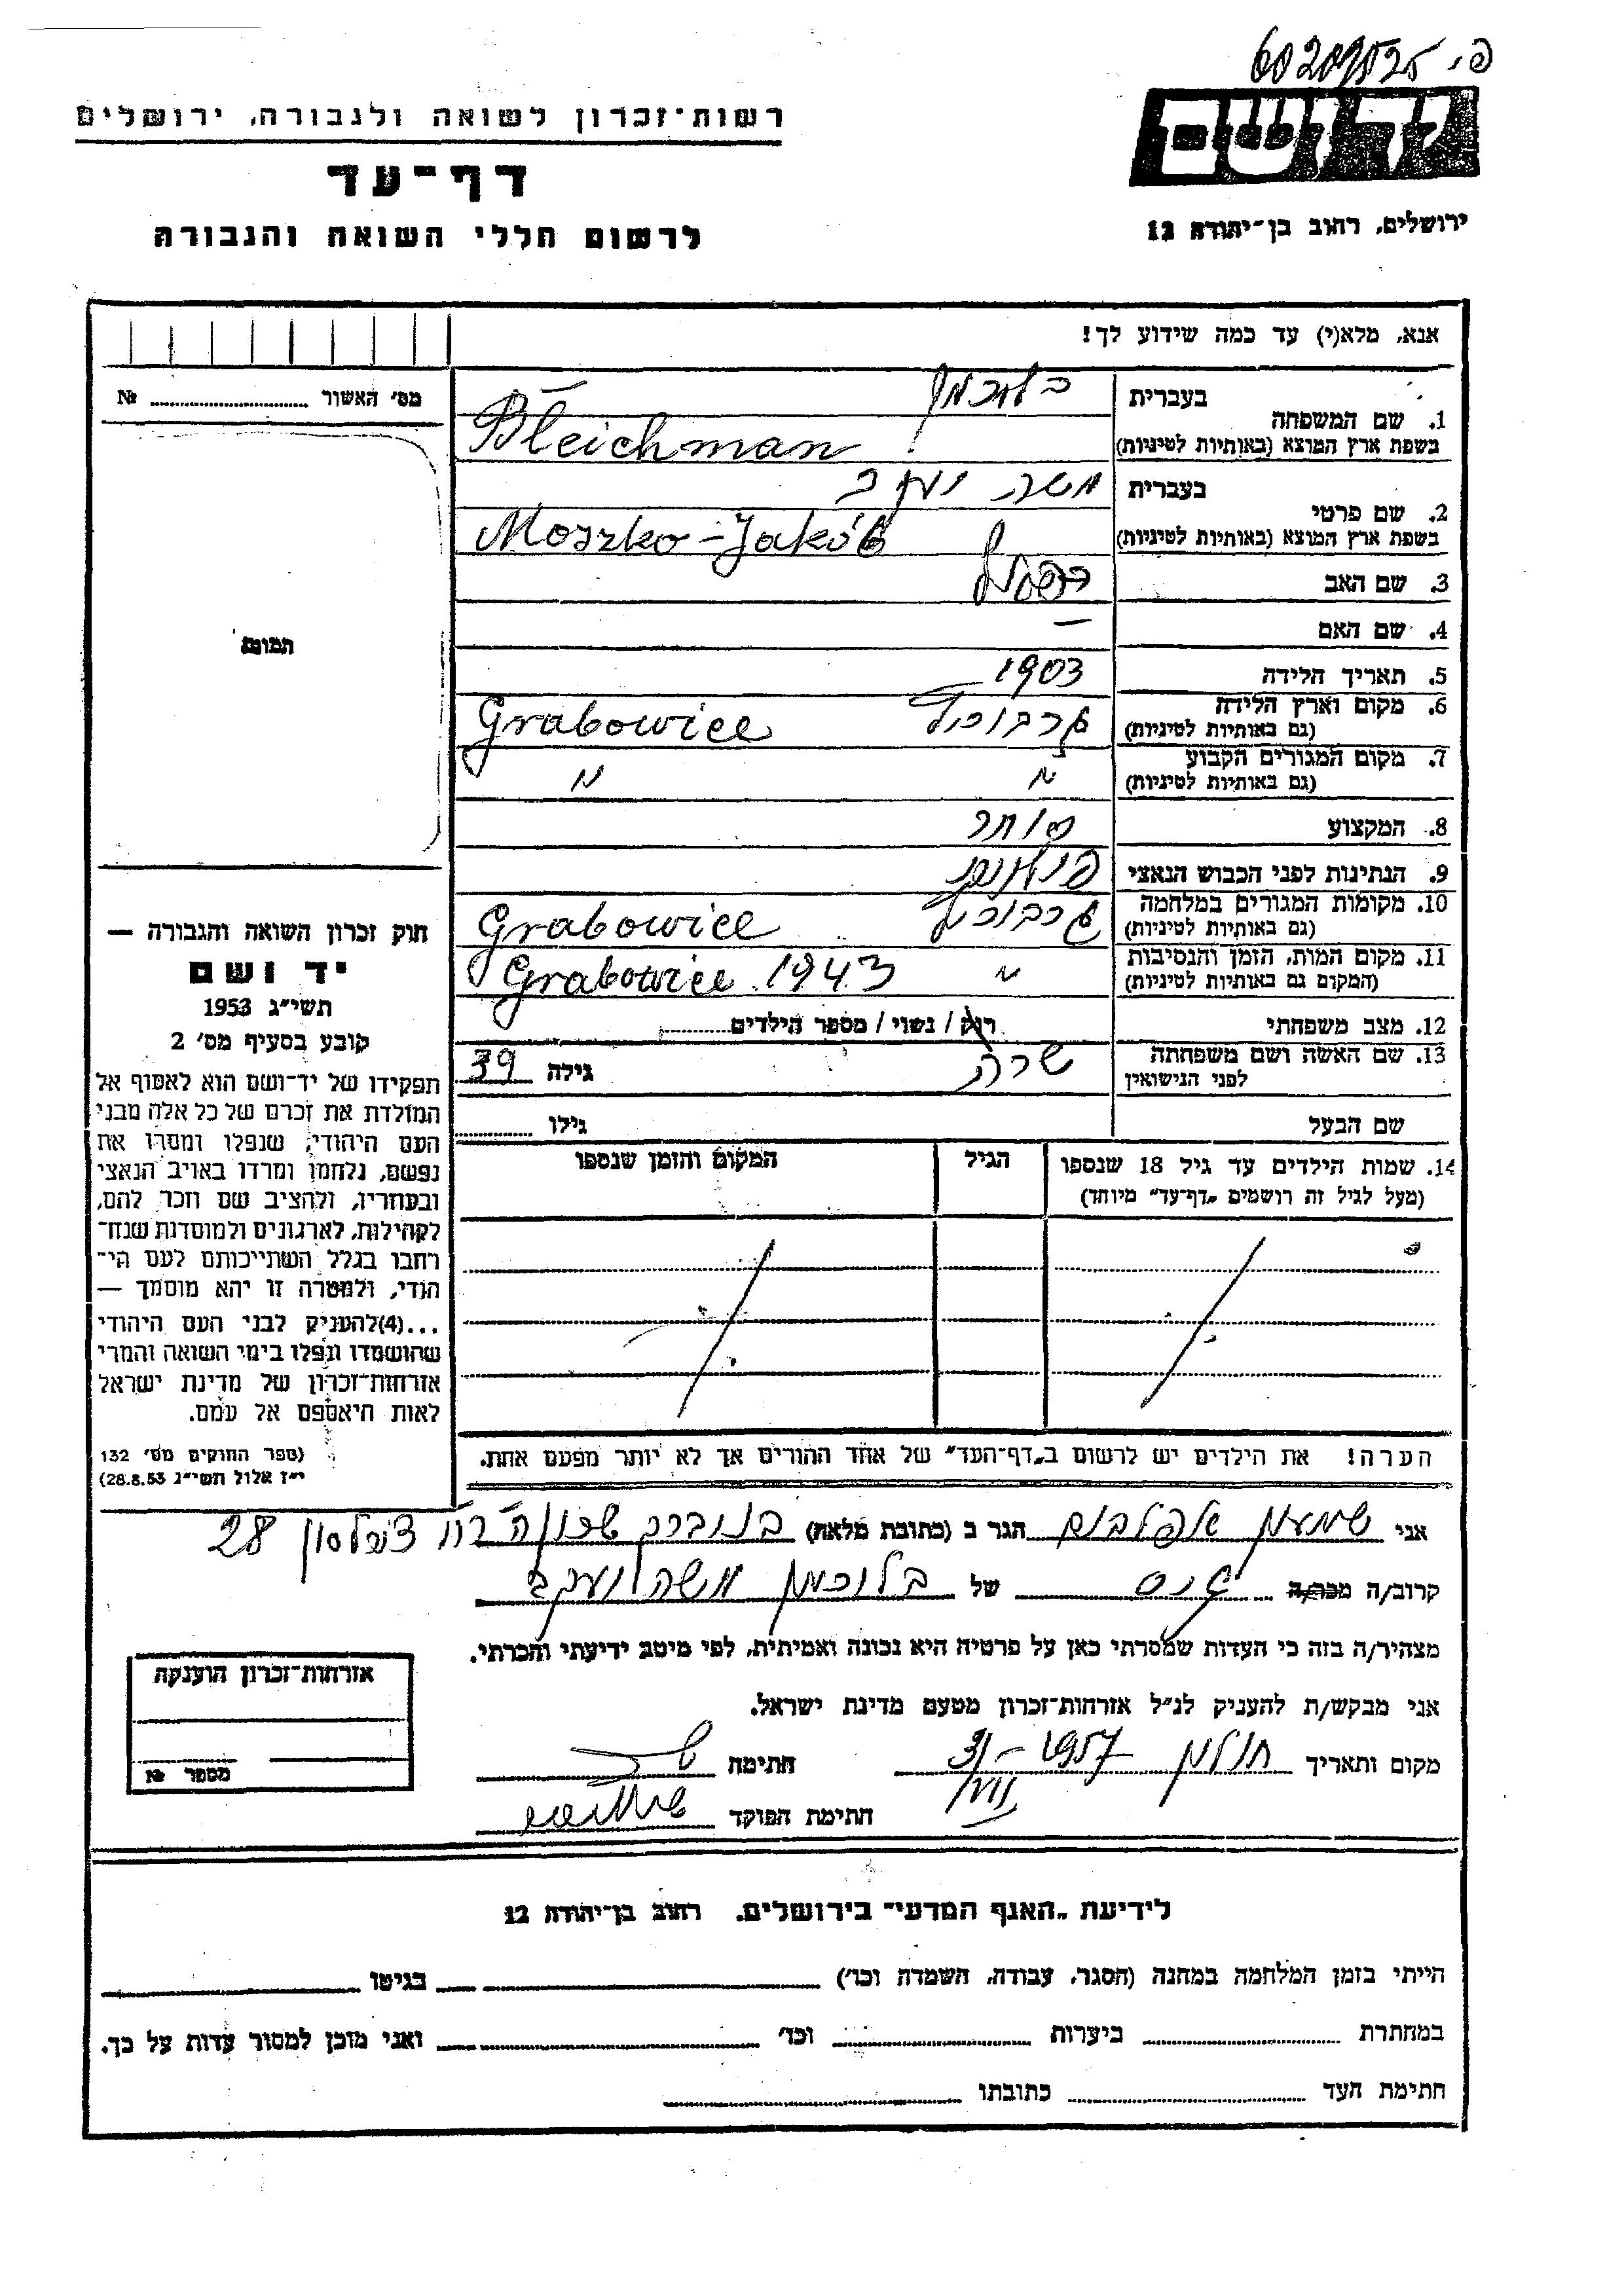 רשות־זכרון לשואה ולגבורה, ירושלים
דף־עד
לרשום חללי השואה והגבורה
ידושם
ירושלים, רחוב בן־יהודה 12
אנא, מלא(י) עד כמה שידוע לך!
מס׳ האשור № 
1. שם המשפחה
בעברית
בשפת ארץ המוצא (באותיות לטיניות) Bleichman
2. שם פרטי
בעברית משה יעקב
בשפת ארץ המוצא (באותיות לטיניות) Moszko-Jakób
3. שם האב
4. שם האם —
5. תאריך הלידה 1903
6. מקום וארץ הלידה (גם באותיות לטיניות) Grabowice
7. מקום המגורים הקבוע (גם באותיות לטיניות) " "
8. המקצוע סוחר
9. הנתינות לפני הכבוש הנאצי פולנית
10. מקומות המגורים במלחמה (גם באותיות לטיניות) Grabowice
11. מקום המות, הזמן והנסיבות (המקום גם באותיות לטיניות) " Grabowice 1943
12. מצב משפחתי רוק / נשוי / מספר הילדים
13. שם האשה ושם משפחתה לפני הנישואין שרה גילה 39
שם הבעל גילו
14. שמות הילדים עד גיל 18 שנספו
(מעל לגיל זה רושמים „דף־עד” מיוחד)
הגיל
המקום והזמן שנספו
הערה! את הילדים יש לרשום ב„דף־העד” של אחד ההורים אך לא יותר מפעם אחת.
תמונה
חוק זכרון השואה והגבורה —
יד ושם
תשי״ג 1953
קובע בסעיף מס׳ 2
תפקידו של יד־ושם הוא לאסוף אל
המולדת את זכרם של כל אלה מבני
העם היהודי, שנפלו ומסרו את
נפשם, נלחמו ומרדו באויב הנאצי
ובעוזריו, ולהציב שם וזכר להם,
לקהילות, לארגונים ולמוסדות שנח־
רבו בגלל השתייכותם לעם הי־
הודי, ולמטרה זו יהא מוסמך —
...(4)להעניק לבני העם היהודי
שהושמדו ונפלו בימי השואה והמרי
אזרחות־זכרון של מדינת ישראל
לאות היאספם אל עמם.
(ספר החוקים מס׳ 132
י״ז אלול תשי״ג 28.8.53)
אני שמעון אפלבוים הגר ב (כתובת מלאה) 28
קרוב/ה מכר/ה גיס של בלייכמן משה יעקב
מצהיר/ה בזה כי העדות שמסרתי כאן על פרטיה היא נכונה ואמיתית, לפי מיטב ידיעתי והכרתי.
אני מבקש/ת להעניק לנ״ל אזרחות־זכרון מטעם מדינת ישראל.
מקום ותאריך חולון 1957 – 31/VII חתימה
חתימת הפוקד
אזרחות־זכרון הוענקה
מספר №
לידיעת „האגף המדעי” בירושלים. רחוב בן־יהודה 12
הייתי בזמן המלחמה במחנה (הסגר, עבודה, השמדה וכו׳) בגיטו
במחתרת ביערות וכו׳ ואני מוכן למסור עדות על כך.
חתימת העד כתובתו